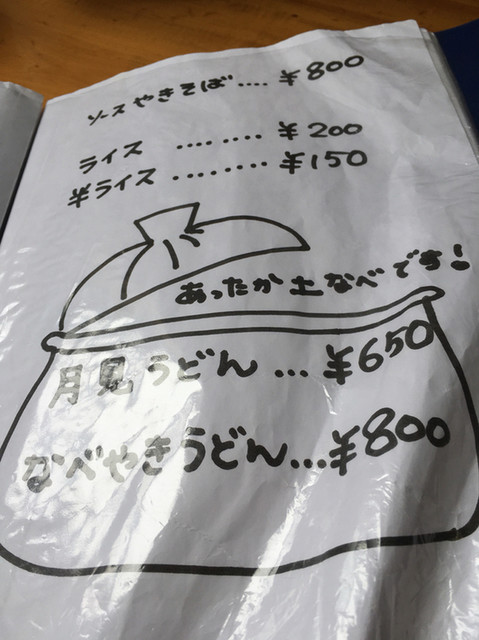 ソースやきそば.... ¥800
ライス ........ ¥200
半ライス ........ ¥150
あったか土なべです!
月見うどん ... ¥650
なべやきうどん...¥800